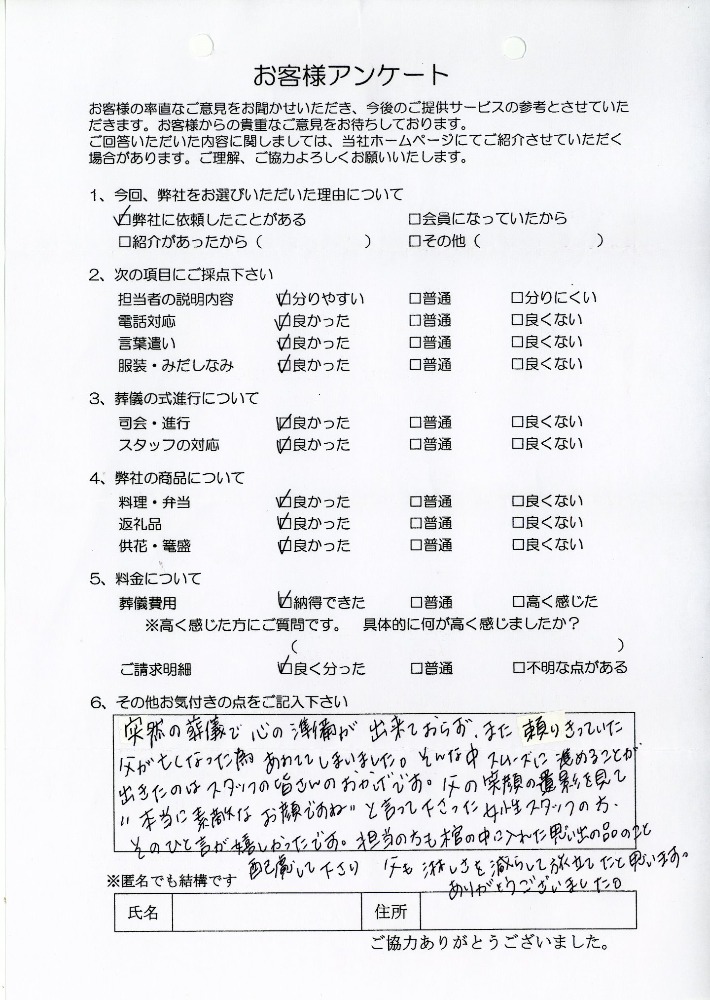 お客様アンケート
お客様の率直なご意見をお聞かせいただき、今後のご提供サービスの参考とさせていた
だきます。お客様からの貴重なご意見をお待ちしております。
ご回答いただいた内容に関しましては、当社ホームページにてご紹介させていただく
場合があります。ご理解、ご協力よろしくお願いいたします。
1、今回、弊社をお選びいただいた理由について
☑弊社に依頼したことがある □会員になっていたから
□紹介があったから（ ） □その他（ ）
2、次の項目にご採点下さい
担当者の説明内容 ☑分りやすい □普通 □分りにくい
電話対応 ☑良かった □普通 □良くない
言葉遣い ☑良かった □普通 □良くない
服装・みだしなみ ☑良かった □普通 □良くない
3、葬儀の式進行について
司会・進行 ☑良かった □普通 □良くない
スタッフの対応 ☑良かった □普通 □良くない
4、弊社の商品について
料理・弁当 ☑良かった □普通 □良くない
返礼品 ☑良かった □普通 □良くない
供花・篭盛 ☑良かった □普通 □良くない
5、料金について
葬儀費用 ☑納得できた □普通 □高く感じた
※高く感じた方にご質問です。 具体的に何が高く感じましたか？
（ ）
ご請求明細 ☑良く分った □普通 □不明な点がある
6、その他お気付きの点をご記入下さい
突然の葬儀で心の準備が出来ておらず、また頼りきっていた
父が亡くなった為あわててしまいました。そんな中スムーズに進めることが
出きたのはスタッフの皆さんのおかげです。父の笑顔の遺影を見て
"本当に素敵なお顔ですね"と言って下さった女性スタッフの方、
そのひと言が嬉しかったです。担当の方も棺の中に入れた思い出の品のこと
配慮して下さり 父も淋しさを減らして旅立てたと思います。
ありがとうございました。
※匿名でも結構です
氏名 住所
ご協力ありがとうございました。